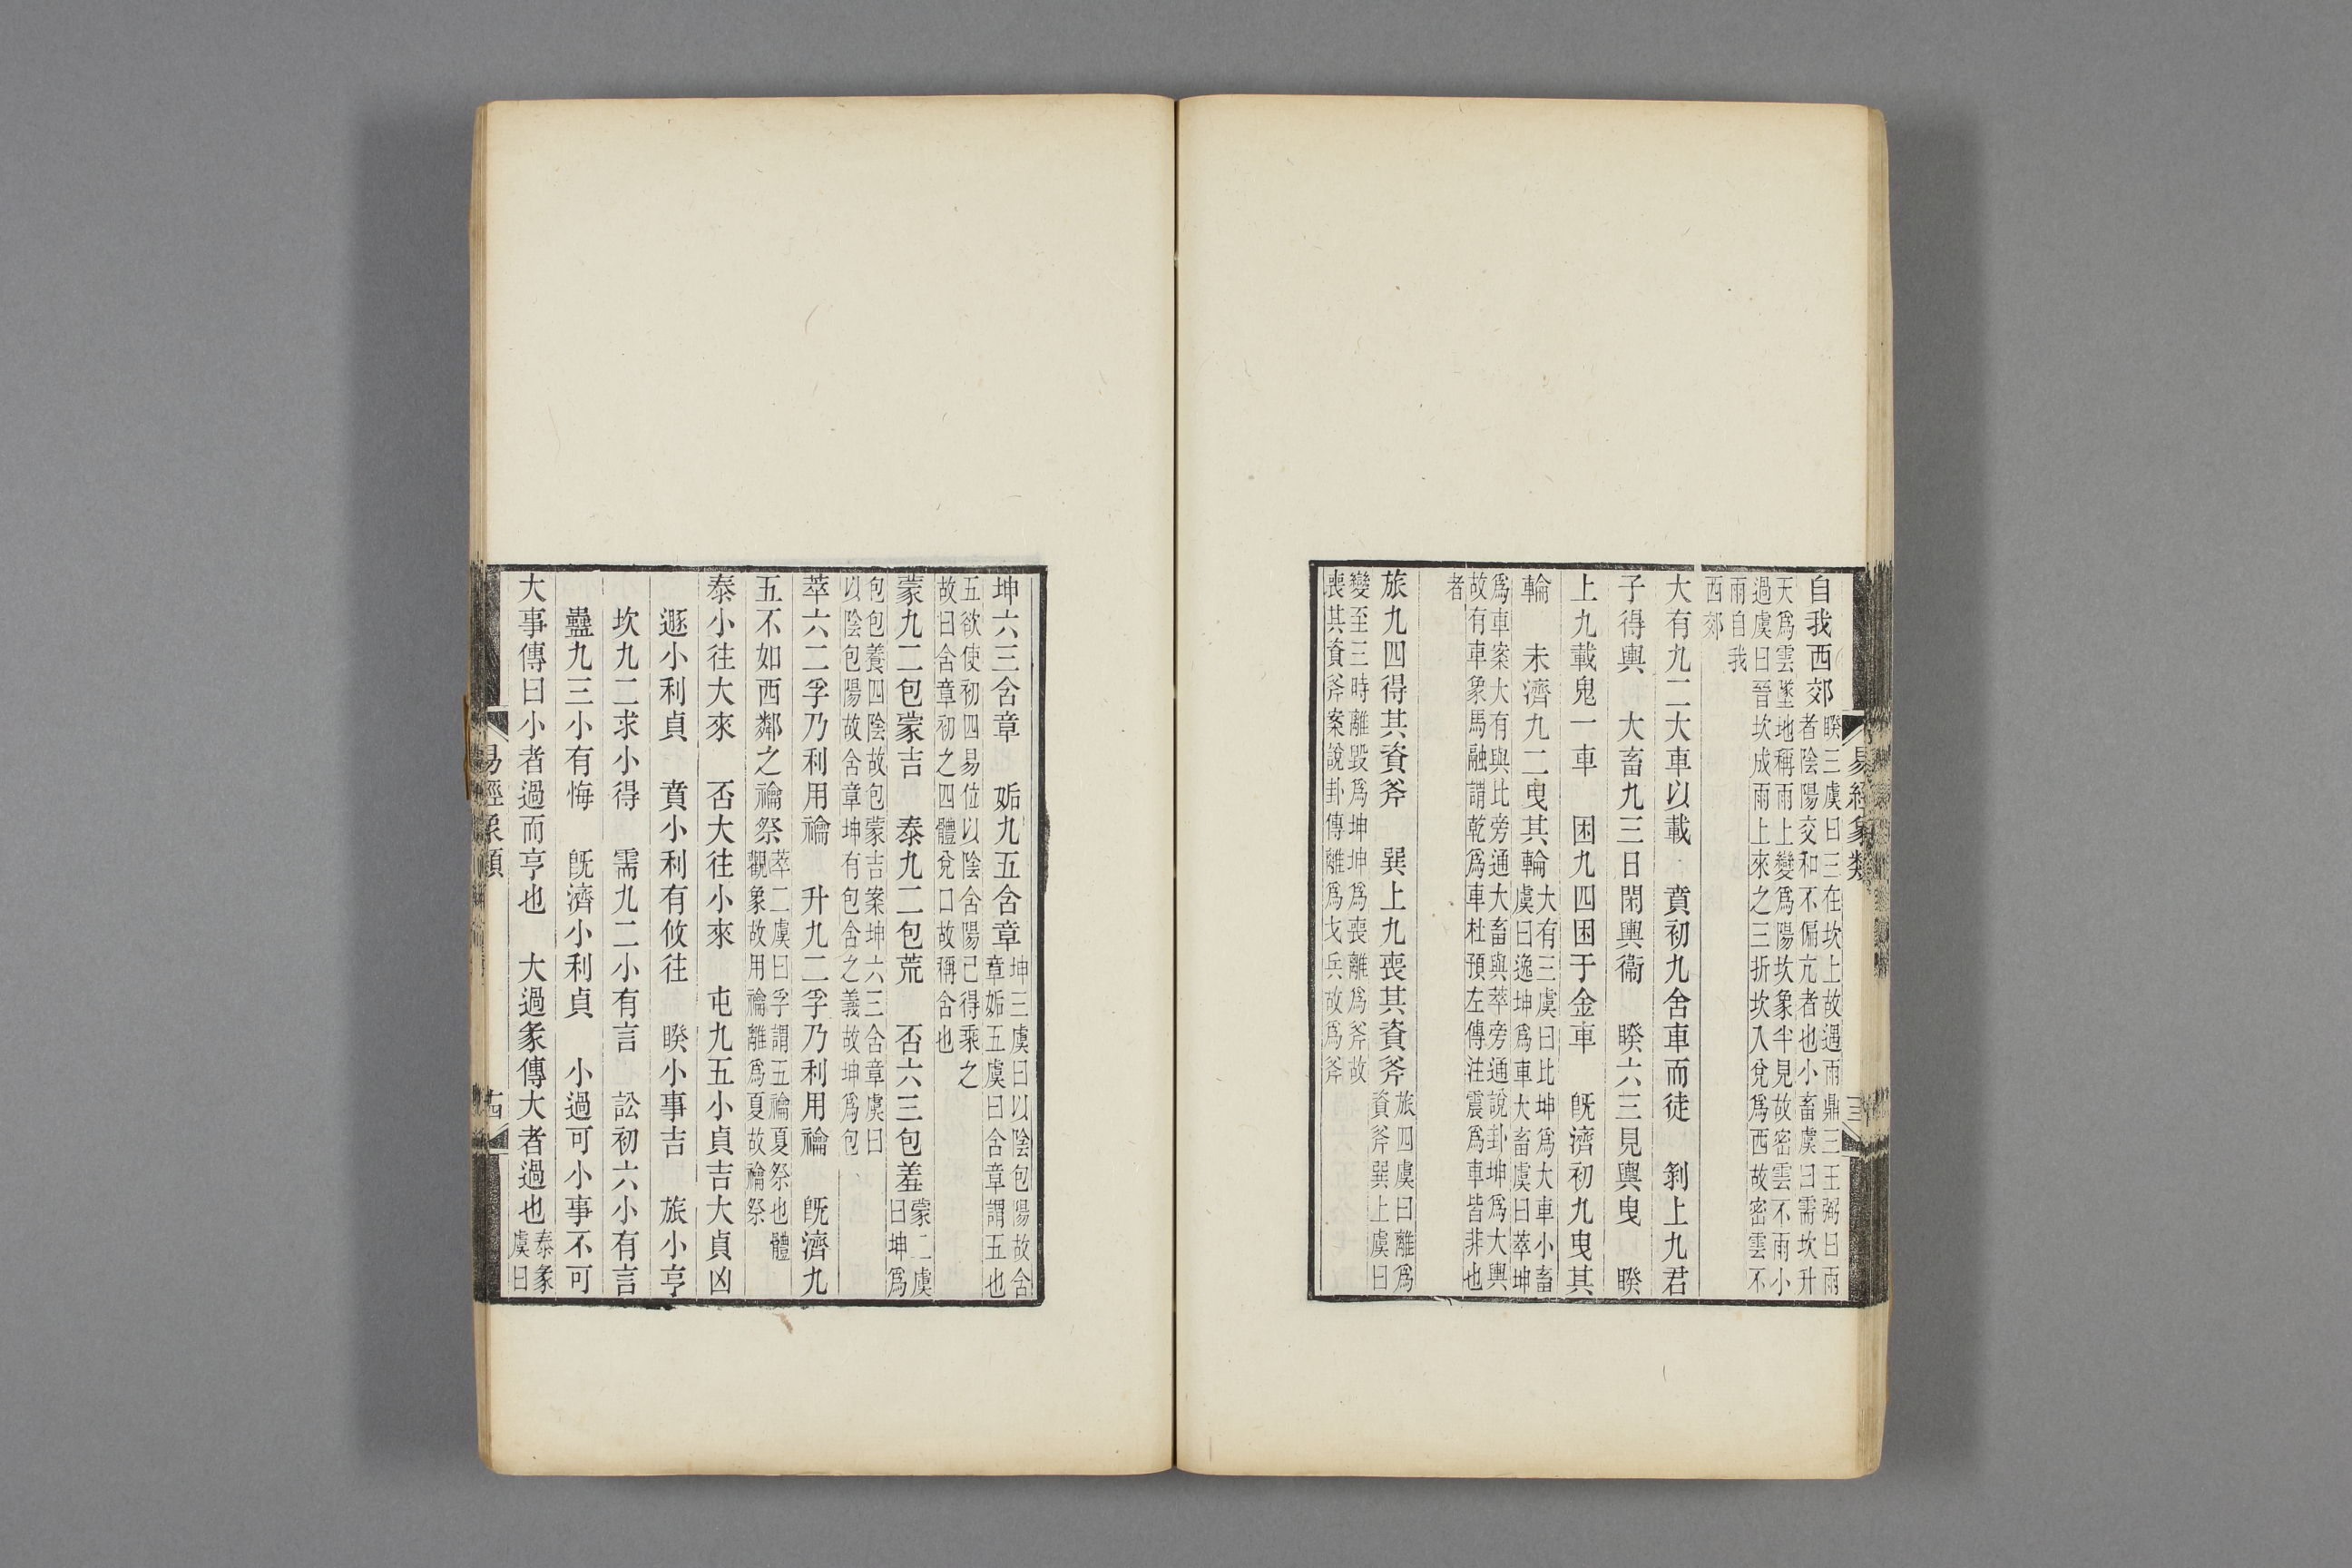 自我西郊
睽三虞曰三在坎上故遇雨鼎三王弼曰雨
者陰陽交和不偏亢者也小畜虞曰需坎升
天爲雲墜地稱雨上變爲陽坎象半見故密雲不雨小
過虞曰晉坎成雨上來之三折坎入兌爲西故密雲不
雨自我
西郊
大有九二大車以載　賁初九舍車而徒　剝上九君
子得輿　大畜九三日閑輿衞　睽六三見輿曳　睽
上九載鬼一車　困九四困于金車　旣濟初九曳其
輪　未濟九二曳其輪
大有三虞曰比坤爲大車小畜
虞曰逸坤爲車大畜虞曰萃坤
爲車案大有與比旁通大畜與萃旁通說卦坤爲大輿
故有車象馬融謂乾爲車杜預左傳注震爲車皆非也
者
旅九四得其資斧　巽上九喪其資斧
旅四虞曰離爲
資斧巽上虞曰
變至三時離毀爲坤坤爲喪離爲斧故
喪其資斧案說卦傳離爲戈兵故爲斧
易經象類
十三
坤六三含章　姤九五含章
坤三虞曰以陰包陽故含
章姤五虞曰含章謂五也
五欲使初四易位以陰含陽已得乘之
故曰含章初之四體兌口故稱含也
蒙九二包蒙吉　泰九二包荒　否六三包羞
蒙二虞
曰坤爲
包包養四陰故包蒙吉案坤六三含章虞曰
以陰包陽故含章坤有包含之義故坤爲包
萃六二孚乃利用禴　升九二孚乃利用禴　旣濟九
五不如西鄰之禴祭
萃二虞曰孚謂五禴夏祭也體
觀象故用禴離爲夏故禴祭
泰小往大來　否大往小來　屯九五小貞吉大貞凶
遯小利貞　賁小利有攸往　睽小事吉　旅小亨
坎九二求小得　需九二小有言　訟初六小有言
蠱九三小有悔　旣濟小利貞　小過可小事不可
大事傳曰小者過而亨也　大過彖傳大者過也
泰彖
虞曰
易經象類
十四